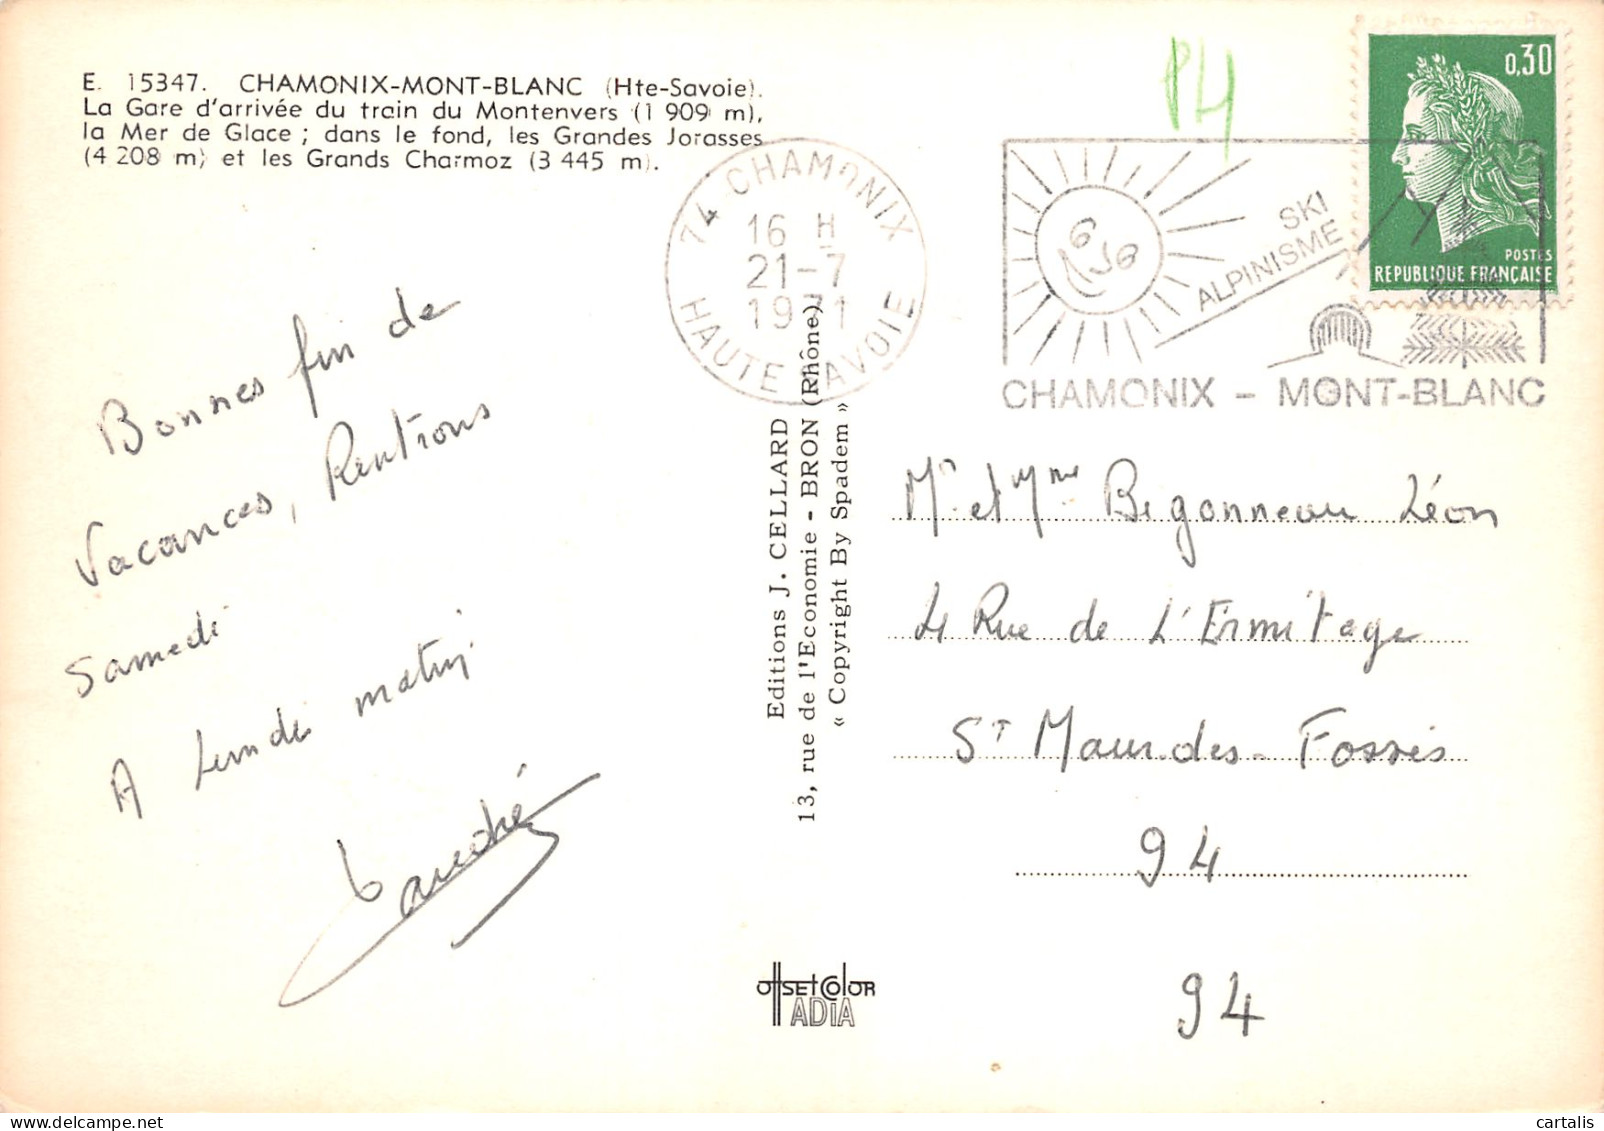 E. 15347. CHAMONIX-MONT-BLANC (Hte-Savoie).
La Gare d'arrivée du train du Montenvers (1 909 m),
la Mer de Glace ; dans le fond, les Grandes Jorasses
(4 208 m) et les Grands Charmoz (3 445 m).
P4
74 CHAMONIX
16 H
21-7
1971
HAUTE SAVOIE
SKI
ALPINISME
CHAMONIX - MONT-BLANC
0,30
POSTES
REPUBLIQUE FRANÇAISE
Bonnes fin de
Vacances, Rentrons
Samedi
A Lundi matin
Editions J. CELLARD
13, rue de l'Economie - BRON (Rhône)
« Copyright By Spadem »
Mr et Mme Bigonneau Léon
4 Rue de L'Ermitage
St Maur-des-Fossés
94
94
OffSEtColor
ADiA
cartalis